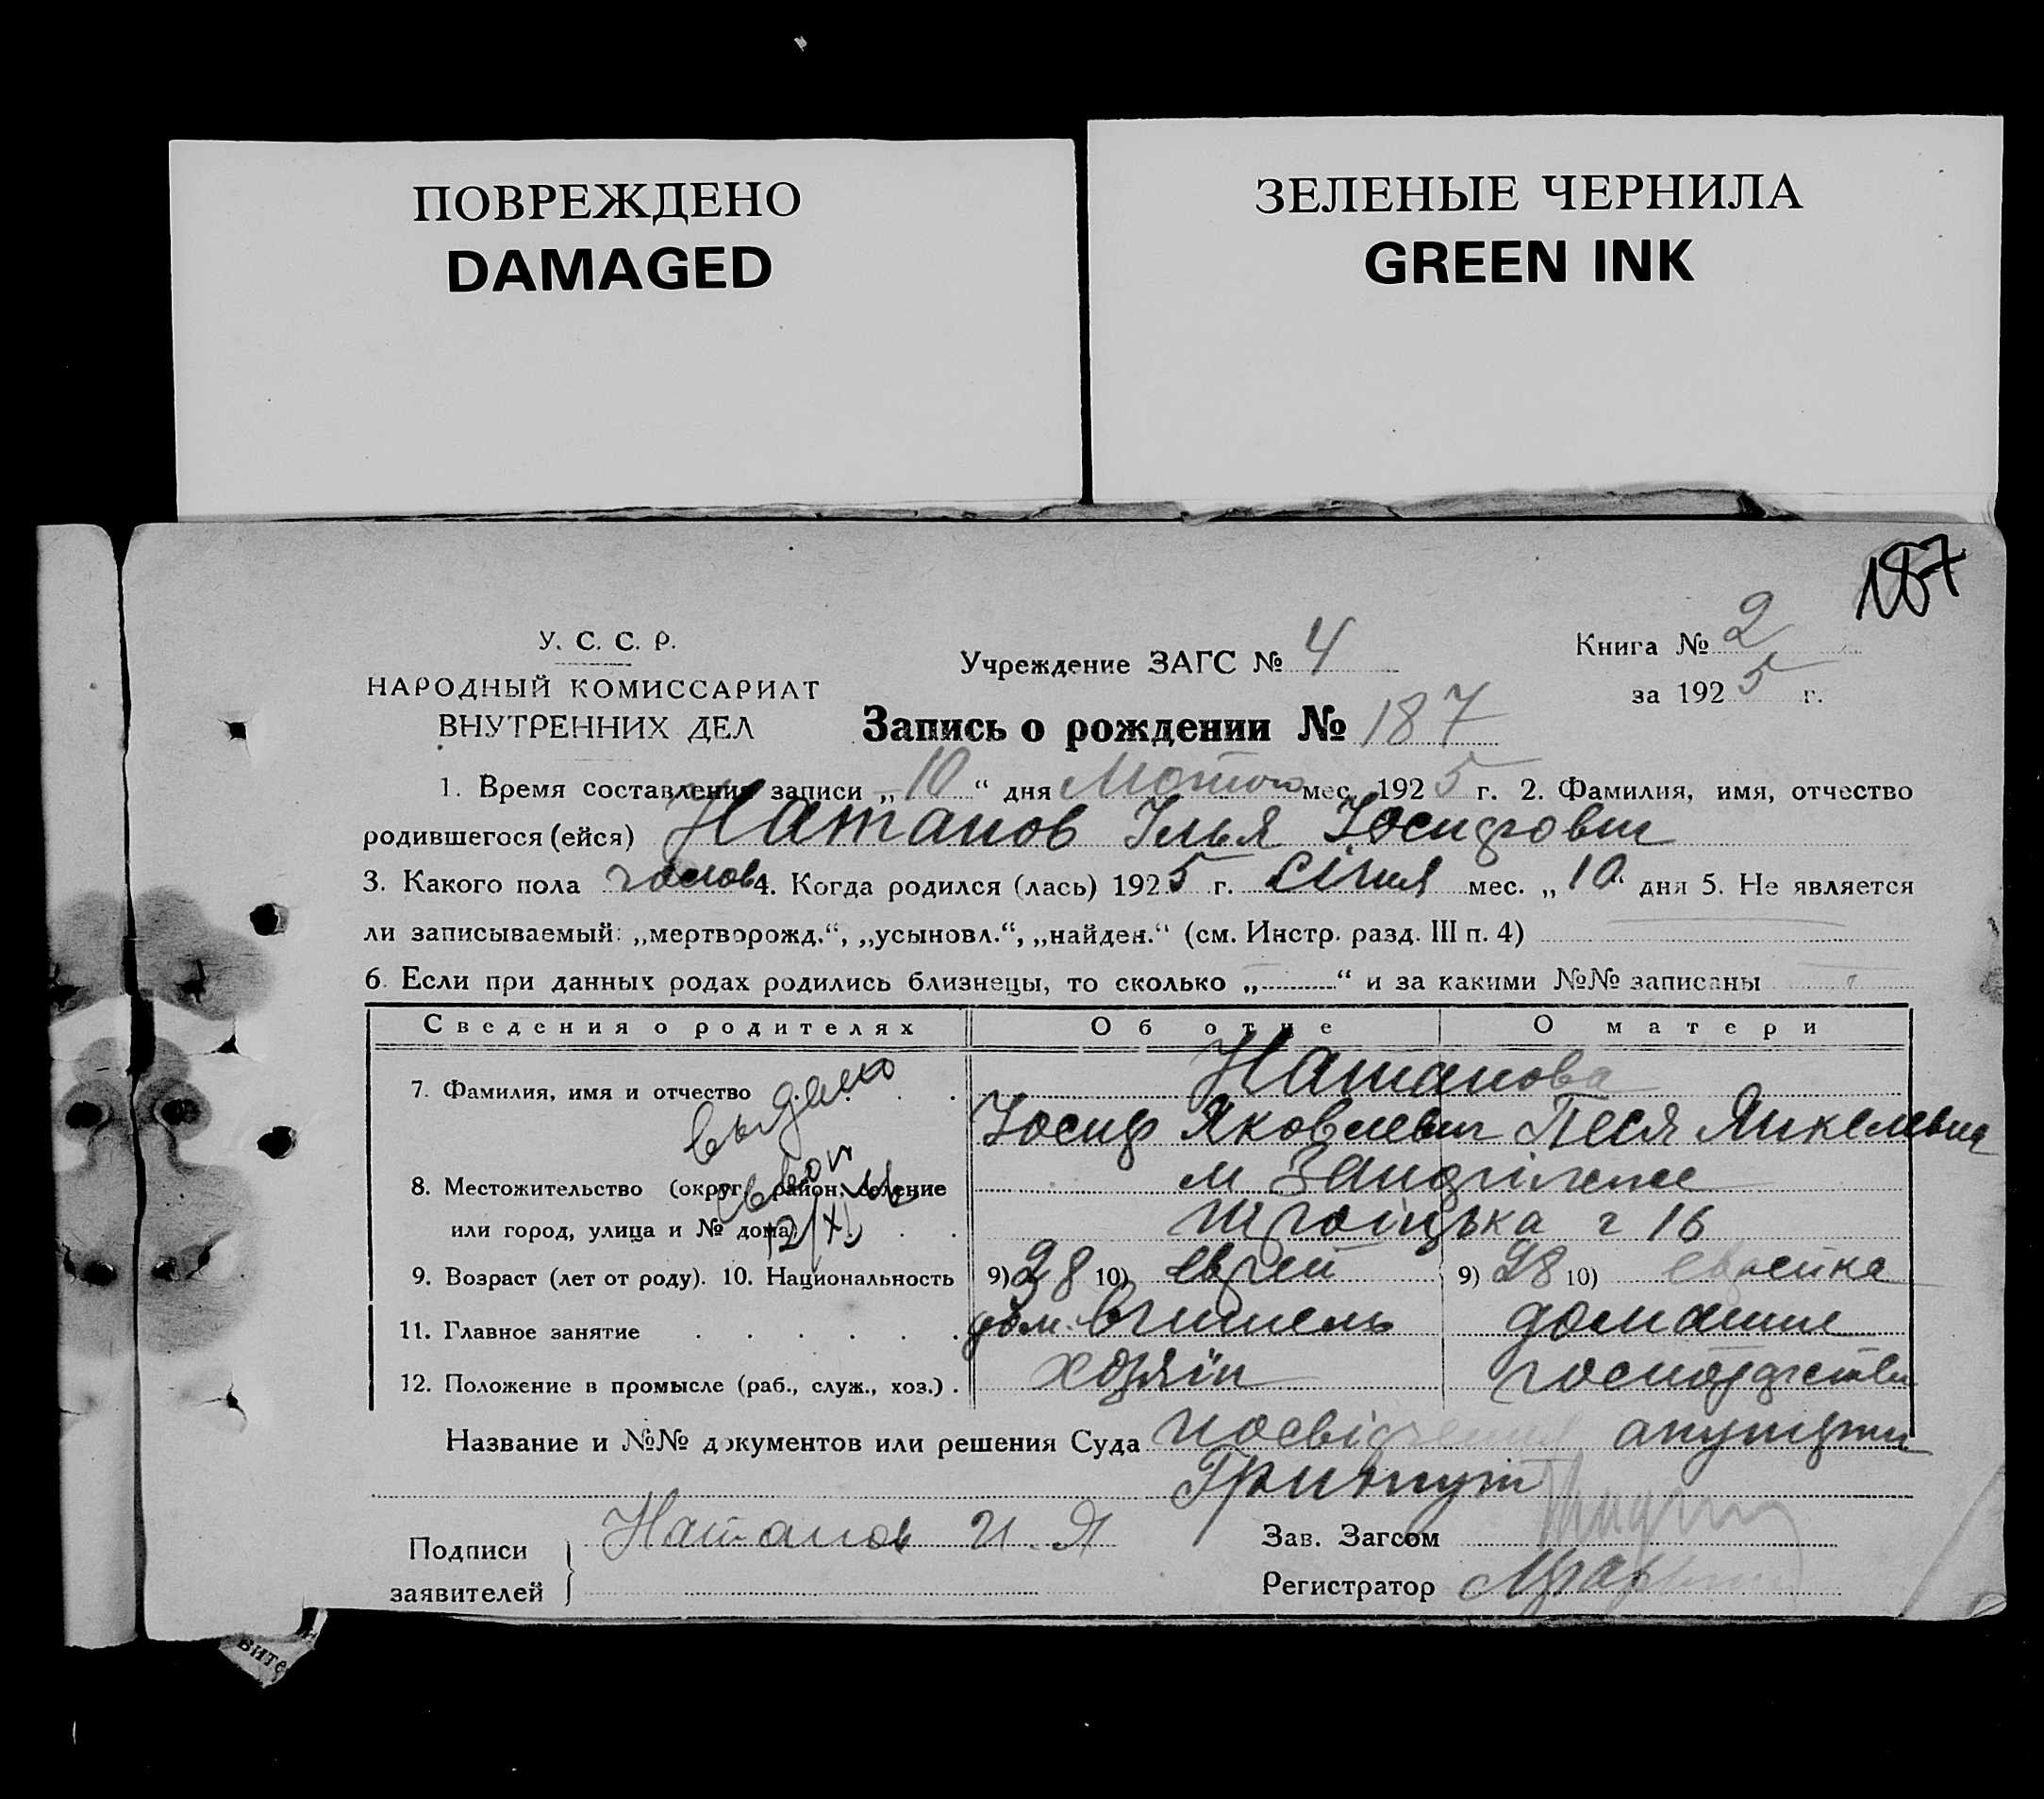 ПОВРЕЖДЕНО
DAMAGED
ЗЕЛЕНЫЕ ЧЕРНИЛА
GREEN INK
187
У. С. С. Р.
НАРОДНЫЙ КОМИССАРИАТ
ВНУТРЕННИХ ДЕЛ
Учреждение ЗАГС № 4
Книга № 2
за 1925 г.
Запись о рождении № 187
1. Время составления записи „10“ дня Лютого мес. 1925 г. 2. Фамилия, имя, отчество
родившегося (ейся) Натанов Ілья Иосифович
3. Какого пола чолов 4. Когда родился (лась) 1925 г. Січня мес. „10“ дня 5. Не является
ли записываемый: „мертворожд.“, „усыновл.“, „найден.“ (см. Инстр. разд. III п. 4)
6. Если при данных родах родились близнецы, то сколько „ “ и за какими №№ записаны
Сведения о родителях Об отце О матери
7. Фамилия, имя и отчество Натанова
выдано
Иосиф Яковлевич Песя Янкелевна
8. Местожительство (округ, район, селение м
или город, улица и № дома) Троіцька 16
9. Возраст (лет от роду). 10. Национальность 9) 28 10) еврей 9) 28 10) еврейка
11. Главное занятие дом. вчитель домашнє
12. Положение в промысле (раб., служ., хоз.) . хозяїн господарство
Название и №№ документов или решения Суда посвідчення акушерки
Подписи заявителей Натанов И. Я
Зав. Загсом
Регистратор
вите